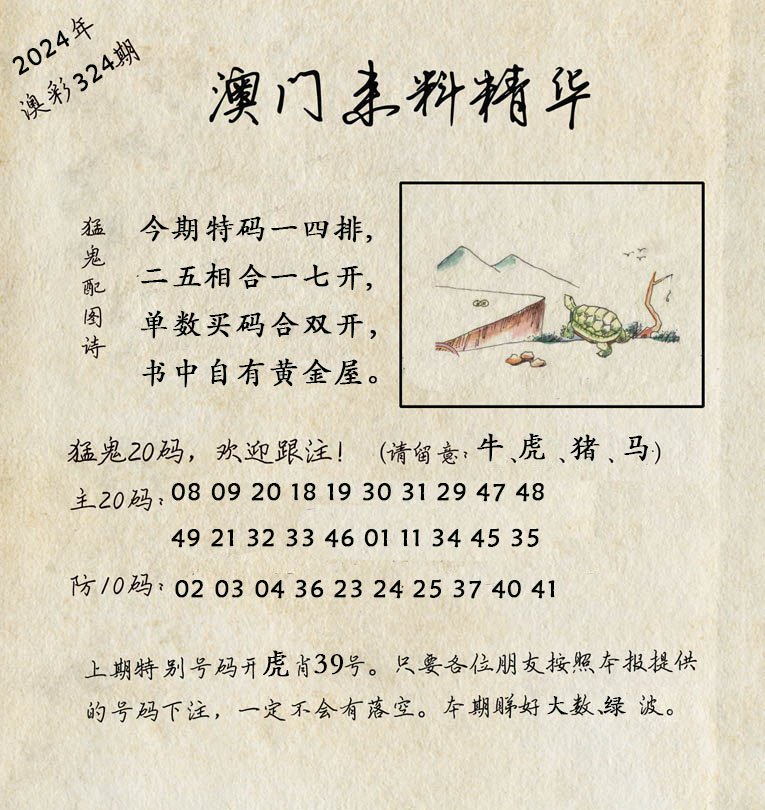 2024年
澳彩324期
澳门来料精华
猛鬼配图诗
今期特码一四排，
二五相合一七开，
单数买码合双开，
书中自有黄金屋。
猛鬼20码，欢迎跟注！（请留意：牛、虎、猪、马）
主20码：08 09 20 18 19 30 31 29 47 48
49 21 32 33 46 01 11 34 45 35
防10码：02 03 04 36 23 24 25 37 40 41
上期特别号码开虎肖39号。只要各位朋友按照本报提供
的号码下注，一定不会有落空。本期睇好大数、绿 波。